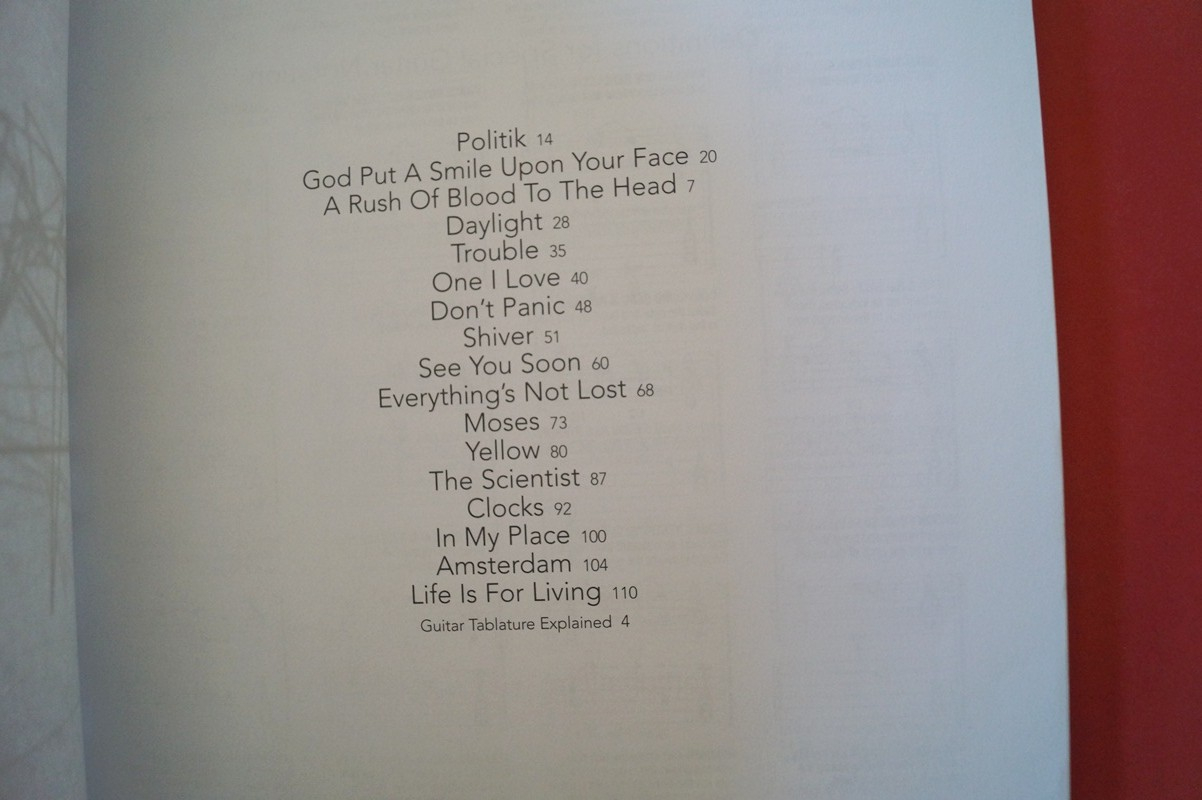 Politik 14
God Put A Smile Upon Your Face 20
A Rush Of Blood To The Head 7
Daylight 28
Trouble 35
One I Love 40
Don't Panic 48
Shiver 51
See You Soon 60
Everything's Not Lost 68
Moses 73
Yellow 80
The Scientist 87
Clocks 92
In My Place 100
Amsterdam 104
Life Is For Living 110
Guitar Tablature Explained 4